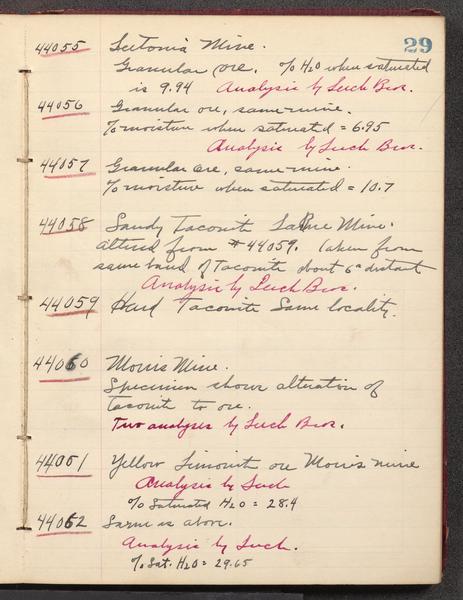 29
44055 Leetonia Mine.
Granular ore. % H2O when saturated
is 9.94 Analysis by Lerch Bros.
44056 Granular ore, same mine.
% moisture when saturated = 6.95
Analysis by Lerch Bros.
44057 Granular ore, same mine.
% moisture when saturated = 10.7
44058 Sandy Taconite LaRue Mine.
Altered from # 44059. Taken from
same band of Taconite about 6" distant
Analysis by Lerch Bros.
44059 Hard Taconite Same locality.
44060 Morris Mine.
Specimen shows alteration of
taconite to ore.
Two analyses by Lerch Bros.
44061 Yellow Limonite ore Morris mine
Analysis by Lerch
% Saturated H2O = 28.4
44062 Same as above.
Analysis by Lerch.
% Sat. H2O = 29.65